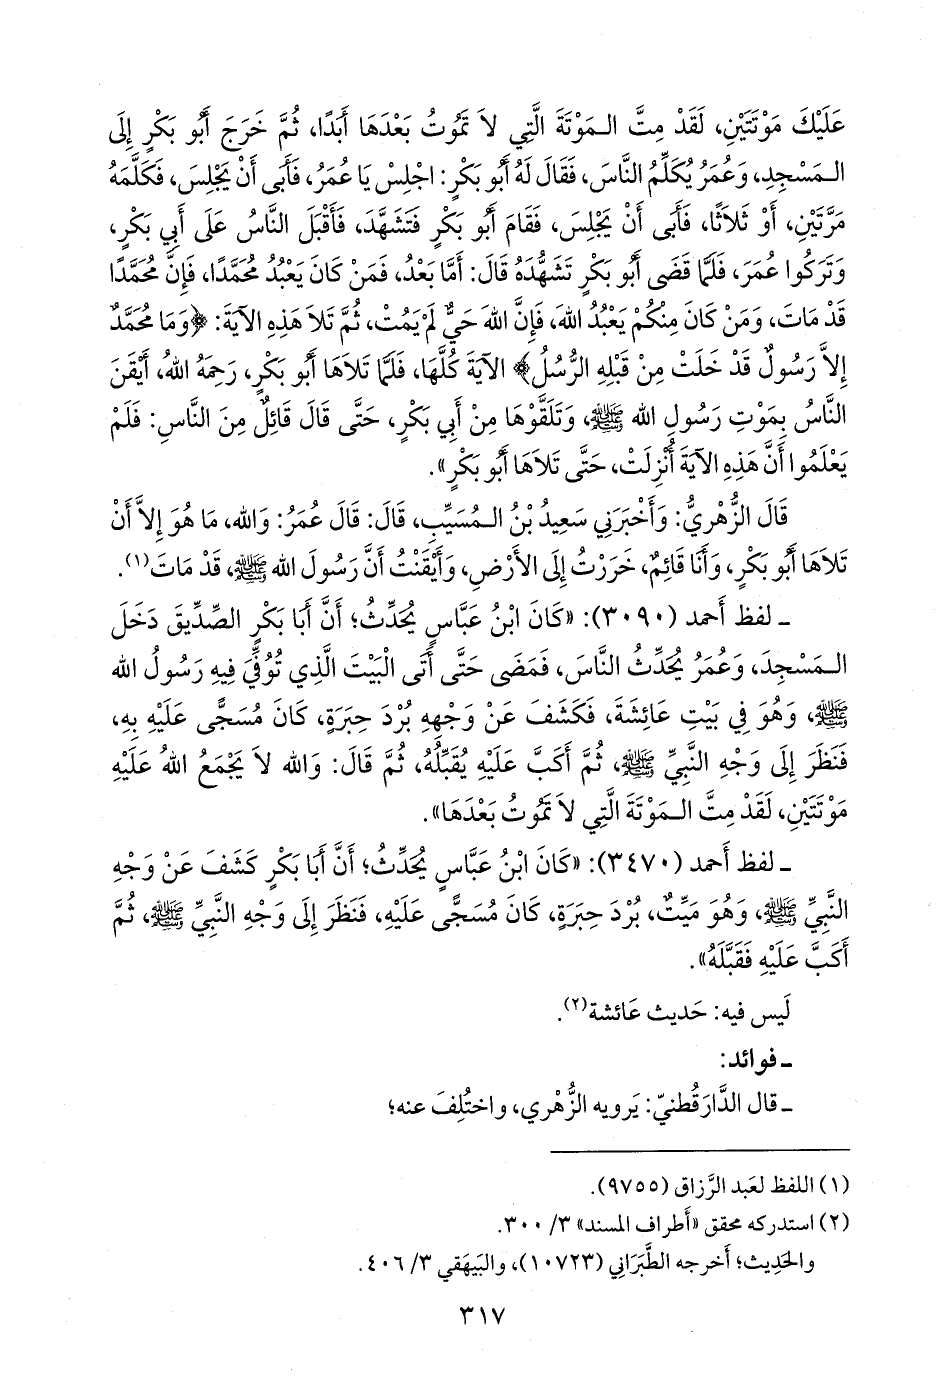 عَلَيْكَ مَوْتَتَيْنِ، لَقَدْ مِتَّ الـمَوْتَةَ الَّتِي لاَ تَمُوتُ بَعْدَهَا أَبَدًا، ثُمَّ خَرَجَ أَبُو بَكْرٍ إِلَى
الـمَسْجِدِ، وَعُمَرُ يُكَلِّمُ النَّاسَ، فَقَالَ لَهُ أَبُو بَكْرٍ: اجْلِسْ يَا عُمَرُ، فَأَبَى أَنْ يَجْلِسَ، فَكَلَّمَهُ
مَرَّتَيْنِ، أَوْ ثَلاَثًا، فَأَبَى أَنْ يَجْلِسَ، فَقَامَ أَبُو بَكْرٍ فَتَشَهَّدَ، فَأَقْبَلَ النَّاسُ عَلَى أَبِي بَكْرٍ،
وَتَرَكُوا عُمَرَ، فَلَمَّا قَضَى أَبُو بَكْرٍ تَشَهُّدَهُ قَالَ: أَمَّا بَعْدُ، فَمَنْ كَانَ يَعْبُدُ مُحَمَّدًا، فَإِنَّ مُحَمَّدًا
قَدْ مَاتَ، وَمَنْ كَانَ مِنْكُمْ يَعْبُدُ اللهَ، فَإِنَّ اللهَ حَيٌّ لَمْ يَمُتْ، ثُمَّ تَلاَ هَذِهِ الآيَةَ: ﴿وَمَا مُحَمَّدٌ
إِلاَّ رَسُولٌ قَدْ خَلَتْ مِنْ قَبْلِهِ الرُّسُلُ﴾ الآيَةَ كُلَّهَا، فَلَمَّا تَلاَهَا أَبُو بَكْرٍ، رَحِمَهُ اللهُ، أَيْقَنَ
النَّاسُ بِمَوْتِ رَسُولِ الله ﷺ، وَتَلَقَّوْهَا مِنْ أَبِي بَكْرٍ، حَتَّى قَالَ قَائِلٌ مِنَ النَّاسِ: فَلَمْ
يَعْلَمُوا أَنَّ هَذِهِ الآيَةَ أُنْزِلَتْ، حَتَّى تَلاَهَا أَبُو بَكْرٍ».
قَالَ الزُّهْرِيُّ: وَأَخْبَرَنِي سَعِيدُ بْنُ الـمُسَيِّبِ، قَالَ: قَالَ عُمَرُ: وَالله، مَا هُوَ إِلاَّ أَنْ
تَلاَهَا أَبُو بَكْرٍ، وَأَنَا قَائِمٌ، خَرَرْتُ إِلَى الأَرْضِ، وَأَيْقَنْتُ أَنَّ رَسُولَ الله ﷺ، قَدْ مَاتَ(١).
ـ لفظ أَحمد (٣٠٩٠): «كَانَ ابْنُ عَبَّاسٍ يُحَدِّثُ؛ أَنَّ أَبَا بَكْرٍ الصِّدِّيقَ دَخَلَ
الـمَسْجِدَ، وَعُمَرُ يُحَدِّثُ النَّاسَ، فَمَضَى حَتَّى أَتَى الْبَيْتَ الَّذِي تُوُفِّيَ فِيهِ رَسُولُ الله
ﷺ، وَهُوَ فِي بَيْتِ عَائِشَةَ، فَكَشَفَ عَنْ وَجْهِهِ بُرْدَ حِبَرَةٍ، كَانَ مُسَجًّى عَلَيْهِ بِهِ،
فَنَظَرَ إِلَى وَجْهِ النَّبِيِّ ﷺ، ثُمَّ أَكَبَّ عَلَيْهِ يُقَبِّلُهُ، ثُمَّ قَالَ: وَالله لاَ يَجْمَعُ اللهُ عَلَيْهِ
مَوْتَتَيْنِ، لَقَدْ مِتَّ الـمَوْتَةَ الَّتِي لاَ تَمُوتُ بَعْدَهَا».
ـ لفظ أَحمد (٣٤٧٠): «كَانَ ابْنُ عَبَّاسٍ يُحَدِّثُ؛ أَنَّ أَبَا بَكْرٍ كَشَفَ عَنْ وَجْهِ
النَّبِيِّ ﷺ، وَهُوَ مَيِّتٌ، بُرْدَ حِبَرَةٍ، كَانَ مُسَجًّى عَلَيْهِ، فَنَظَرَ إِلَى وَجْهِ النَّبِيِّ ﷺ، ثُمَّ
أَكَبَّ عَلَيْهِ فَقَبَّلَهُ».
لَيس فيه: حَديث عَائشة(٢).
ـ فوائد:
ـ قال الدَّارَقُطنيّ: يَرويه الزُّهْري، واختُلِفَ عنه؛
(١) اللفظ لعَبد الرَّزاق (٩٧٥٥).
(٢) استدركه محقق «أَطراف المسند» ٣/ ٣٠٠.
والحَدِيث؛ أَخرجه الطَّبَرَاني (١٠٧٢٣)، والبَيهَقي ٣/ ٤٠٦.
٣١٧